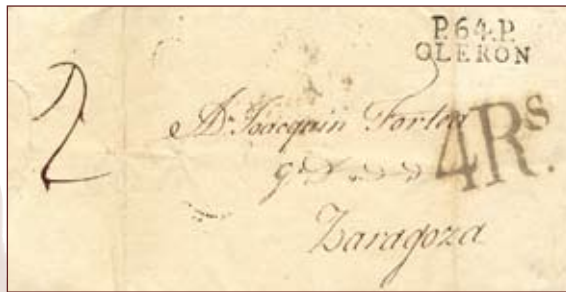 P.64.P.
OLERON
2
Dn. Joacquin Forten
4Rs.
Zaragoza